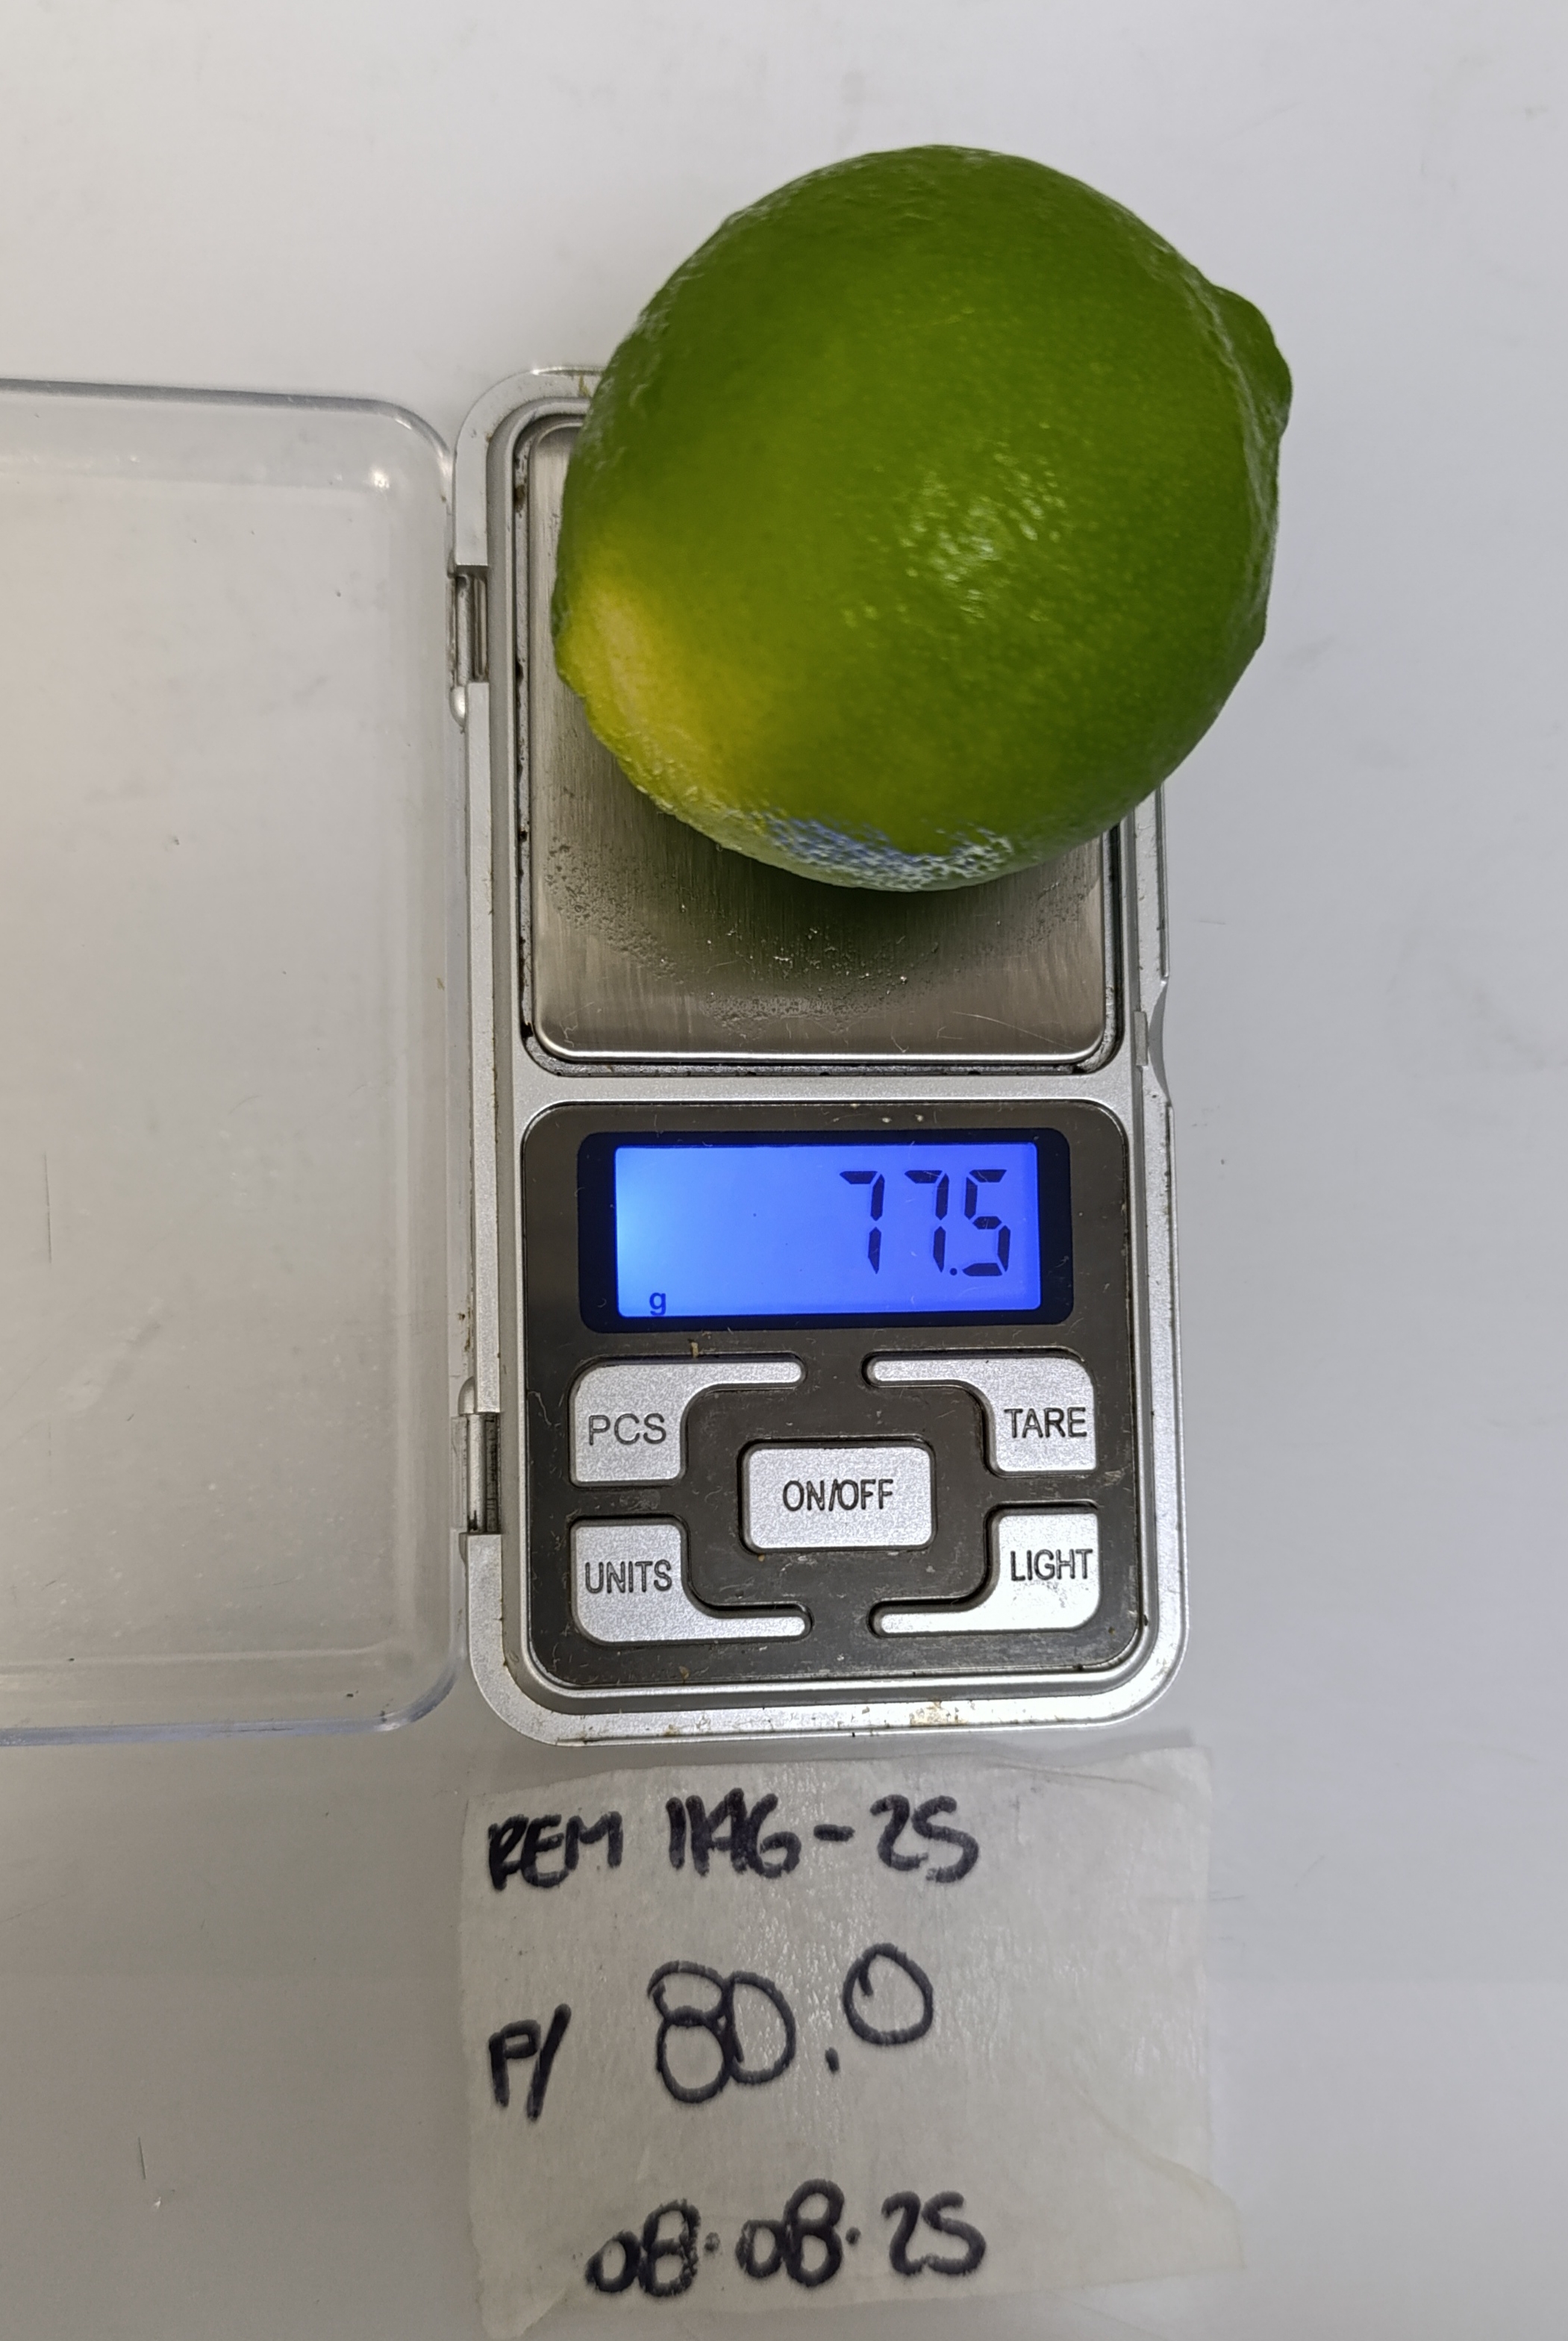 77.5
g
PCS
TARE
ON/OFF
UNITS
LIGHT
REM 1146-25
P/ 80.0
08.08.25